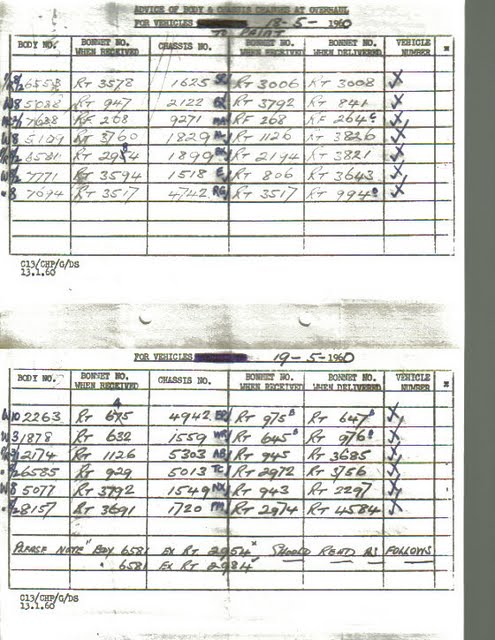 ADVICE OF BODY & CHASSIS CHANGES AT OVERHAUL
FOR VEHICLES 18-5-1960
TO PAINT
BODY NO. BONNET NO. WHEN RECEIVED CHASSIS NO. BONNET NO. WHEN RECEIVED BONNET NO. WHEN DELIVERED VEHICLE NUMBER *
6558 RT 3578 1625 RT 3006 RT 3008 X
W8 5088 RT 947 2122 RT 3792 RT 841 X
7638 RF 268 9271 MA RF 268 RF 264 C X
W8 5109 RT 3760 1829 RT 1126 RT 3826 X
6581 RT 2954 1899 RT 2194 RT 3821 X
7771 RT 3594 1518 E RT 806 RT 3643 X
" 8 7094 RT 3517 4742 RG RT 3517 RT 994 X
C13/CHP/G/DS
13.1.60
FOR VEHICLES 19-5-1960
BODY NO. BONNET NO. WHEN RECEIVED CHASSIS NO. BONNET NO. WHEN RECEIVED BONNET NO. WHEN DELIVERED VEHICLE NUMBER *
W10 2263 RT 675 4942 RT 975 B RT 647 B X
W3 1878 RT 632 1559 RT 645 B RT 976 B X
2174 RT 1126 5303 AB RT 945 RT 3685 X
6585 RT 929 5013 TC RT 2972 RT 3756 X
W8 5077 RT 3792 1549 NX RT 943 RT 2297 X
8157 RT 3691 1720 RT 2974 RT 4584 X
PLEASE NOTE" BDY 6581 EX RT 2954" SHOULD READ AS FOLLOWS
" 6581 EX RT 2984"
C13/CHP/G/DS
13.1.60